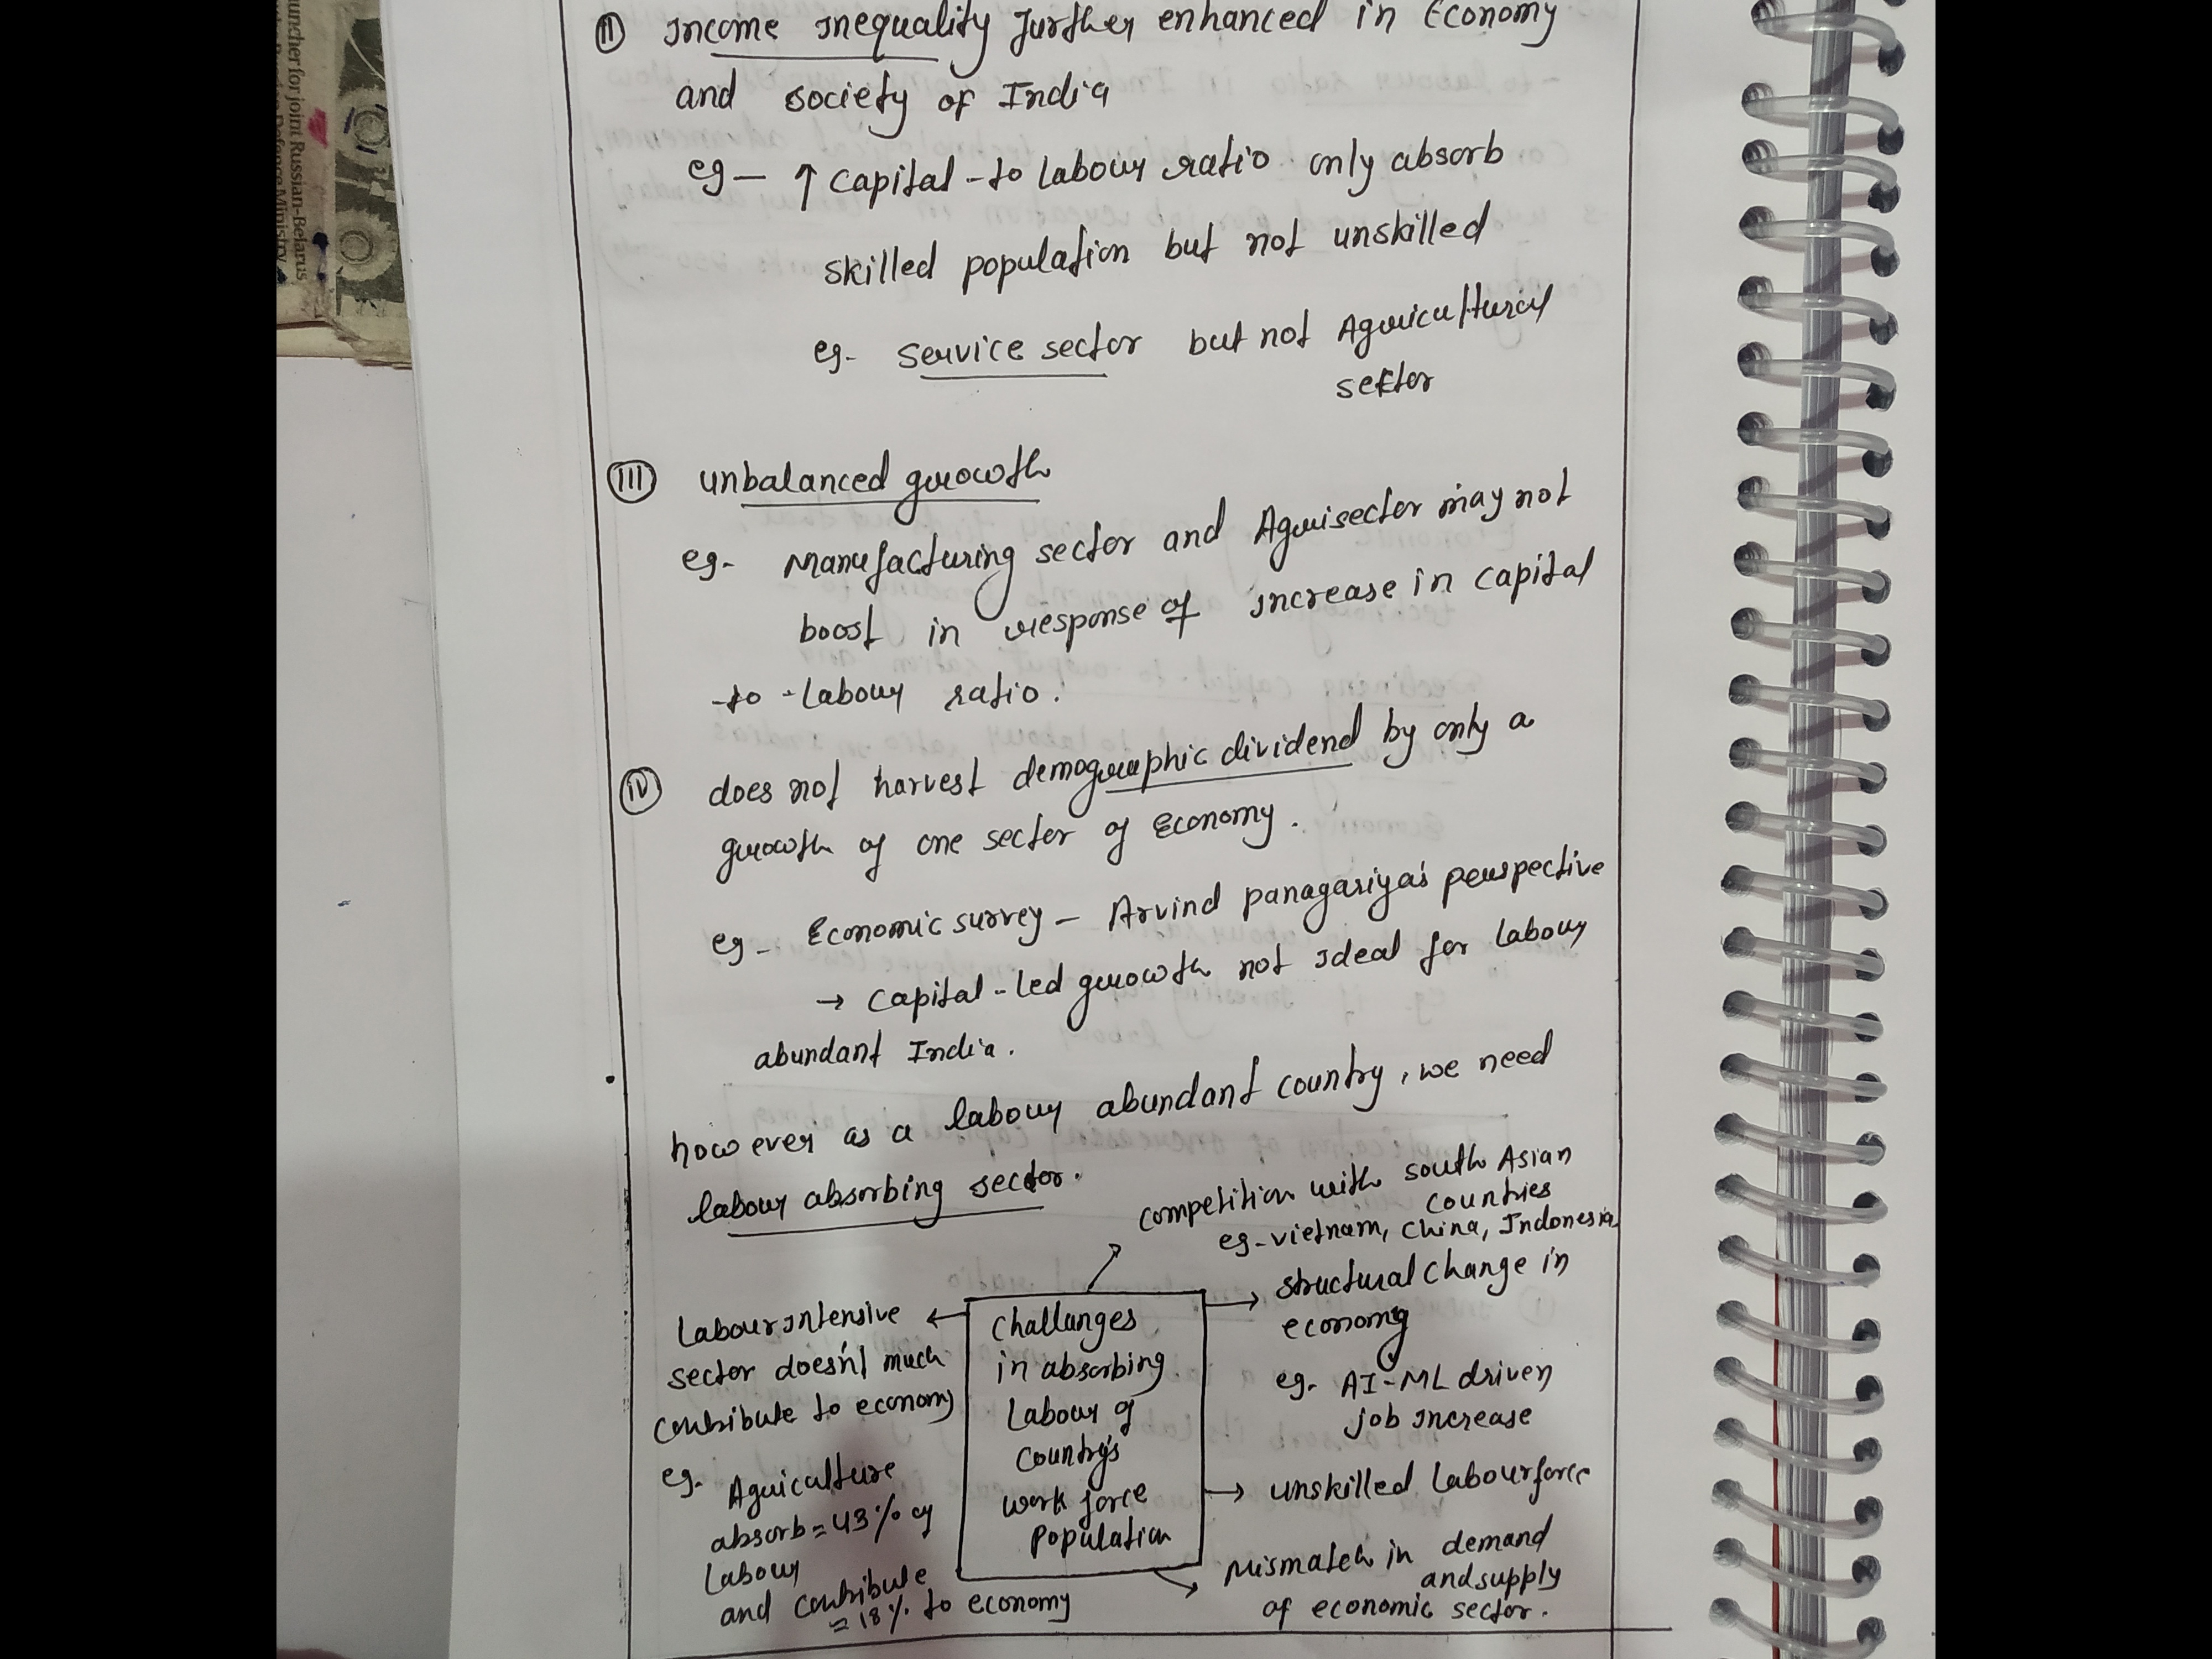 uncher for joint Russian-Belarus
Defence Ministry
II Income inequality further enhanced in Economy
and society of India
eg — ↑ capital - to labour ratio only absorb
skilled population but not unskilled
eg. service sector but not Agricultural
sector
III unbalanced growth
eg. Manufacturing sector and Agrisector may not
boost in response of increase in capital
-to -labour ratio.
IV does not harvest demographic dividend by only a
growth of one sector of Economy.
eg - Economic survey - Arvind panagariya's perspective
→ capital - led growth not ideal for labour
abundant India.
however as a labour abundant country, we need
labour absorbing sector.
competition with south Asian
countries
eg - vietnam, China, Indonesia
structural change in
economy
eg. AI-ML driven
job increase
unskilled labourforce
Mismatch in demand
and supply
of economic sector.
challanges
in absorbing
Labour of
country's
work force
population
Labour intensive
sector doesn't much
contribute to economy
eg. Agriculture
absorb = 43% of
Labour
and contribute
= 18% to economy